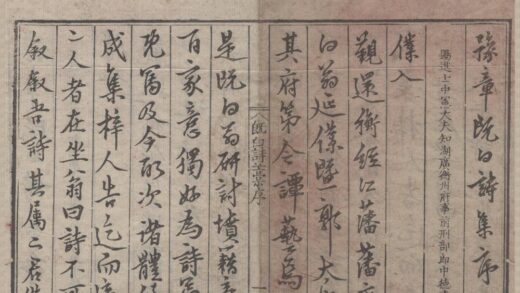 豫章既白詩集序
賜進士中憲大夫知湖廣衡州府事前刑部郎中
僕入
觀還衡經江藩藩
白翁延僕暨一郭大
其府第令譚藝焉
既白詩藁序
一
是既白翁研討墳籍
百家意獨好為詩
既富及今所次諸體
成集梓人告迄而
二人者在坐翁曰詩不可
叙叙吾詩其属二君